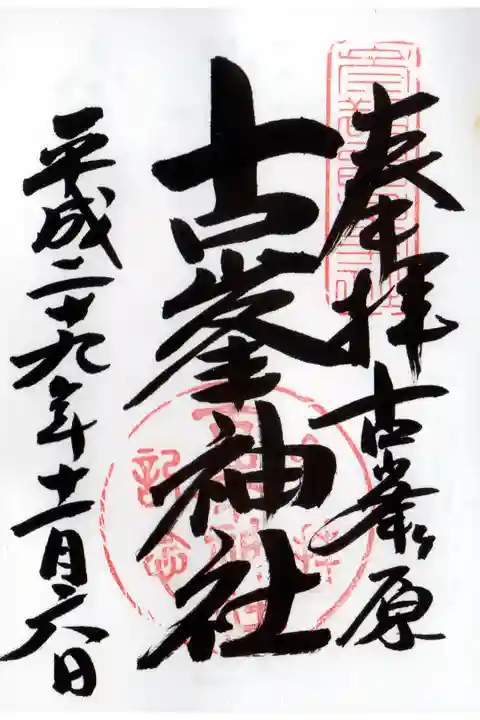 奉拝 古峯ヶ原
古峯神社
平成二十九年十一月六日
記念